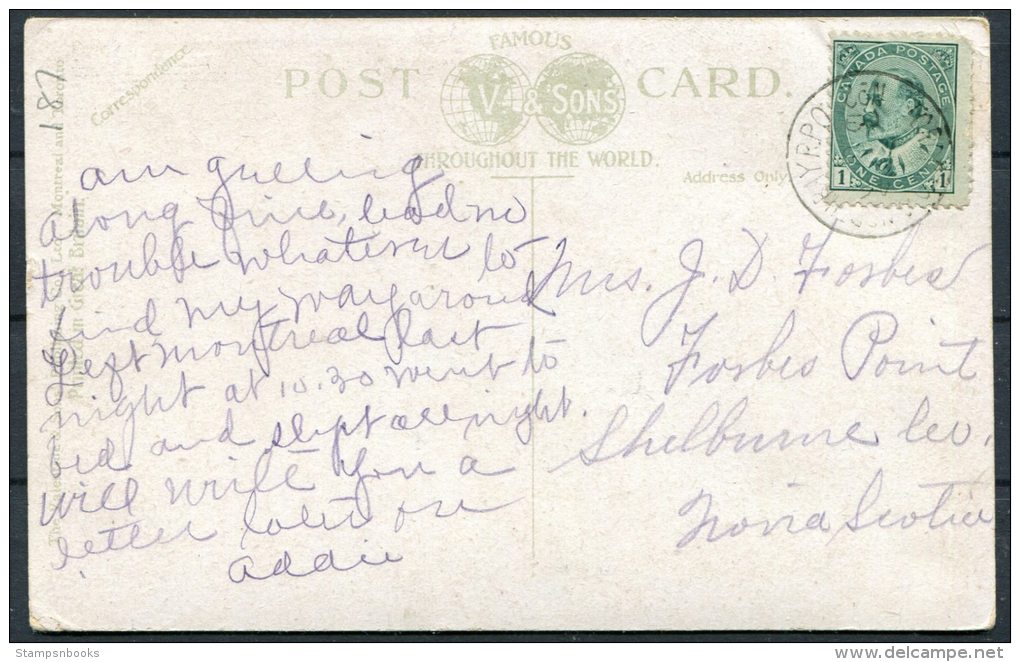 FAMOUS
POST CARD.
V. & SONS
THROUGHOUT THE WORLD.
Correspondence
Address Only
187
CANADA POSTAGE
1 ONE CENT 1
R.P.O.
am getting
along fine, had no
trouble whatever to
find my way around
left Montreal last
night at 10.30 went to
bed and slept all night.
will write you a
letter later on
Addie
Mrs. J. D. Forbes
Forbes Point
Shelburne Co.
Nova Scotia
Montreal and Toronto
Printed in Great Britain.
Stampsnbooks
delcampe.net